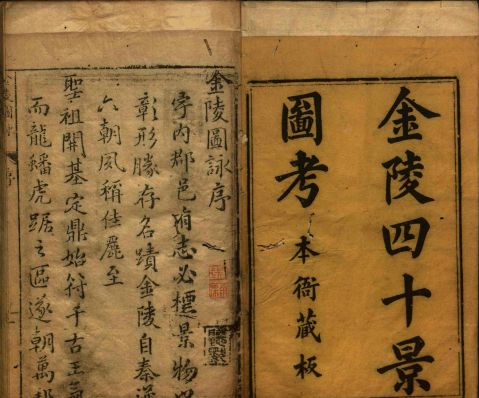 金陵四十景
圖考 本衙藏板
金陵圖詠序
宇內郡邑有志必標景物
彰形勝存名蹟金陵自秦漢
六朝夙稱佳麗至
聖祖開基定鼎始符千古王氣
而龍蟠虎踞之區遂朝萬邦
序